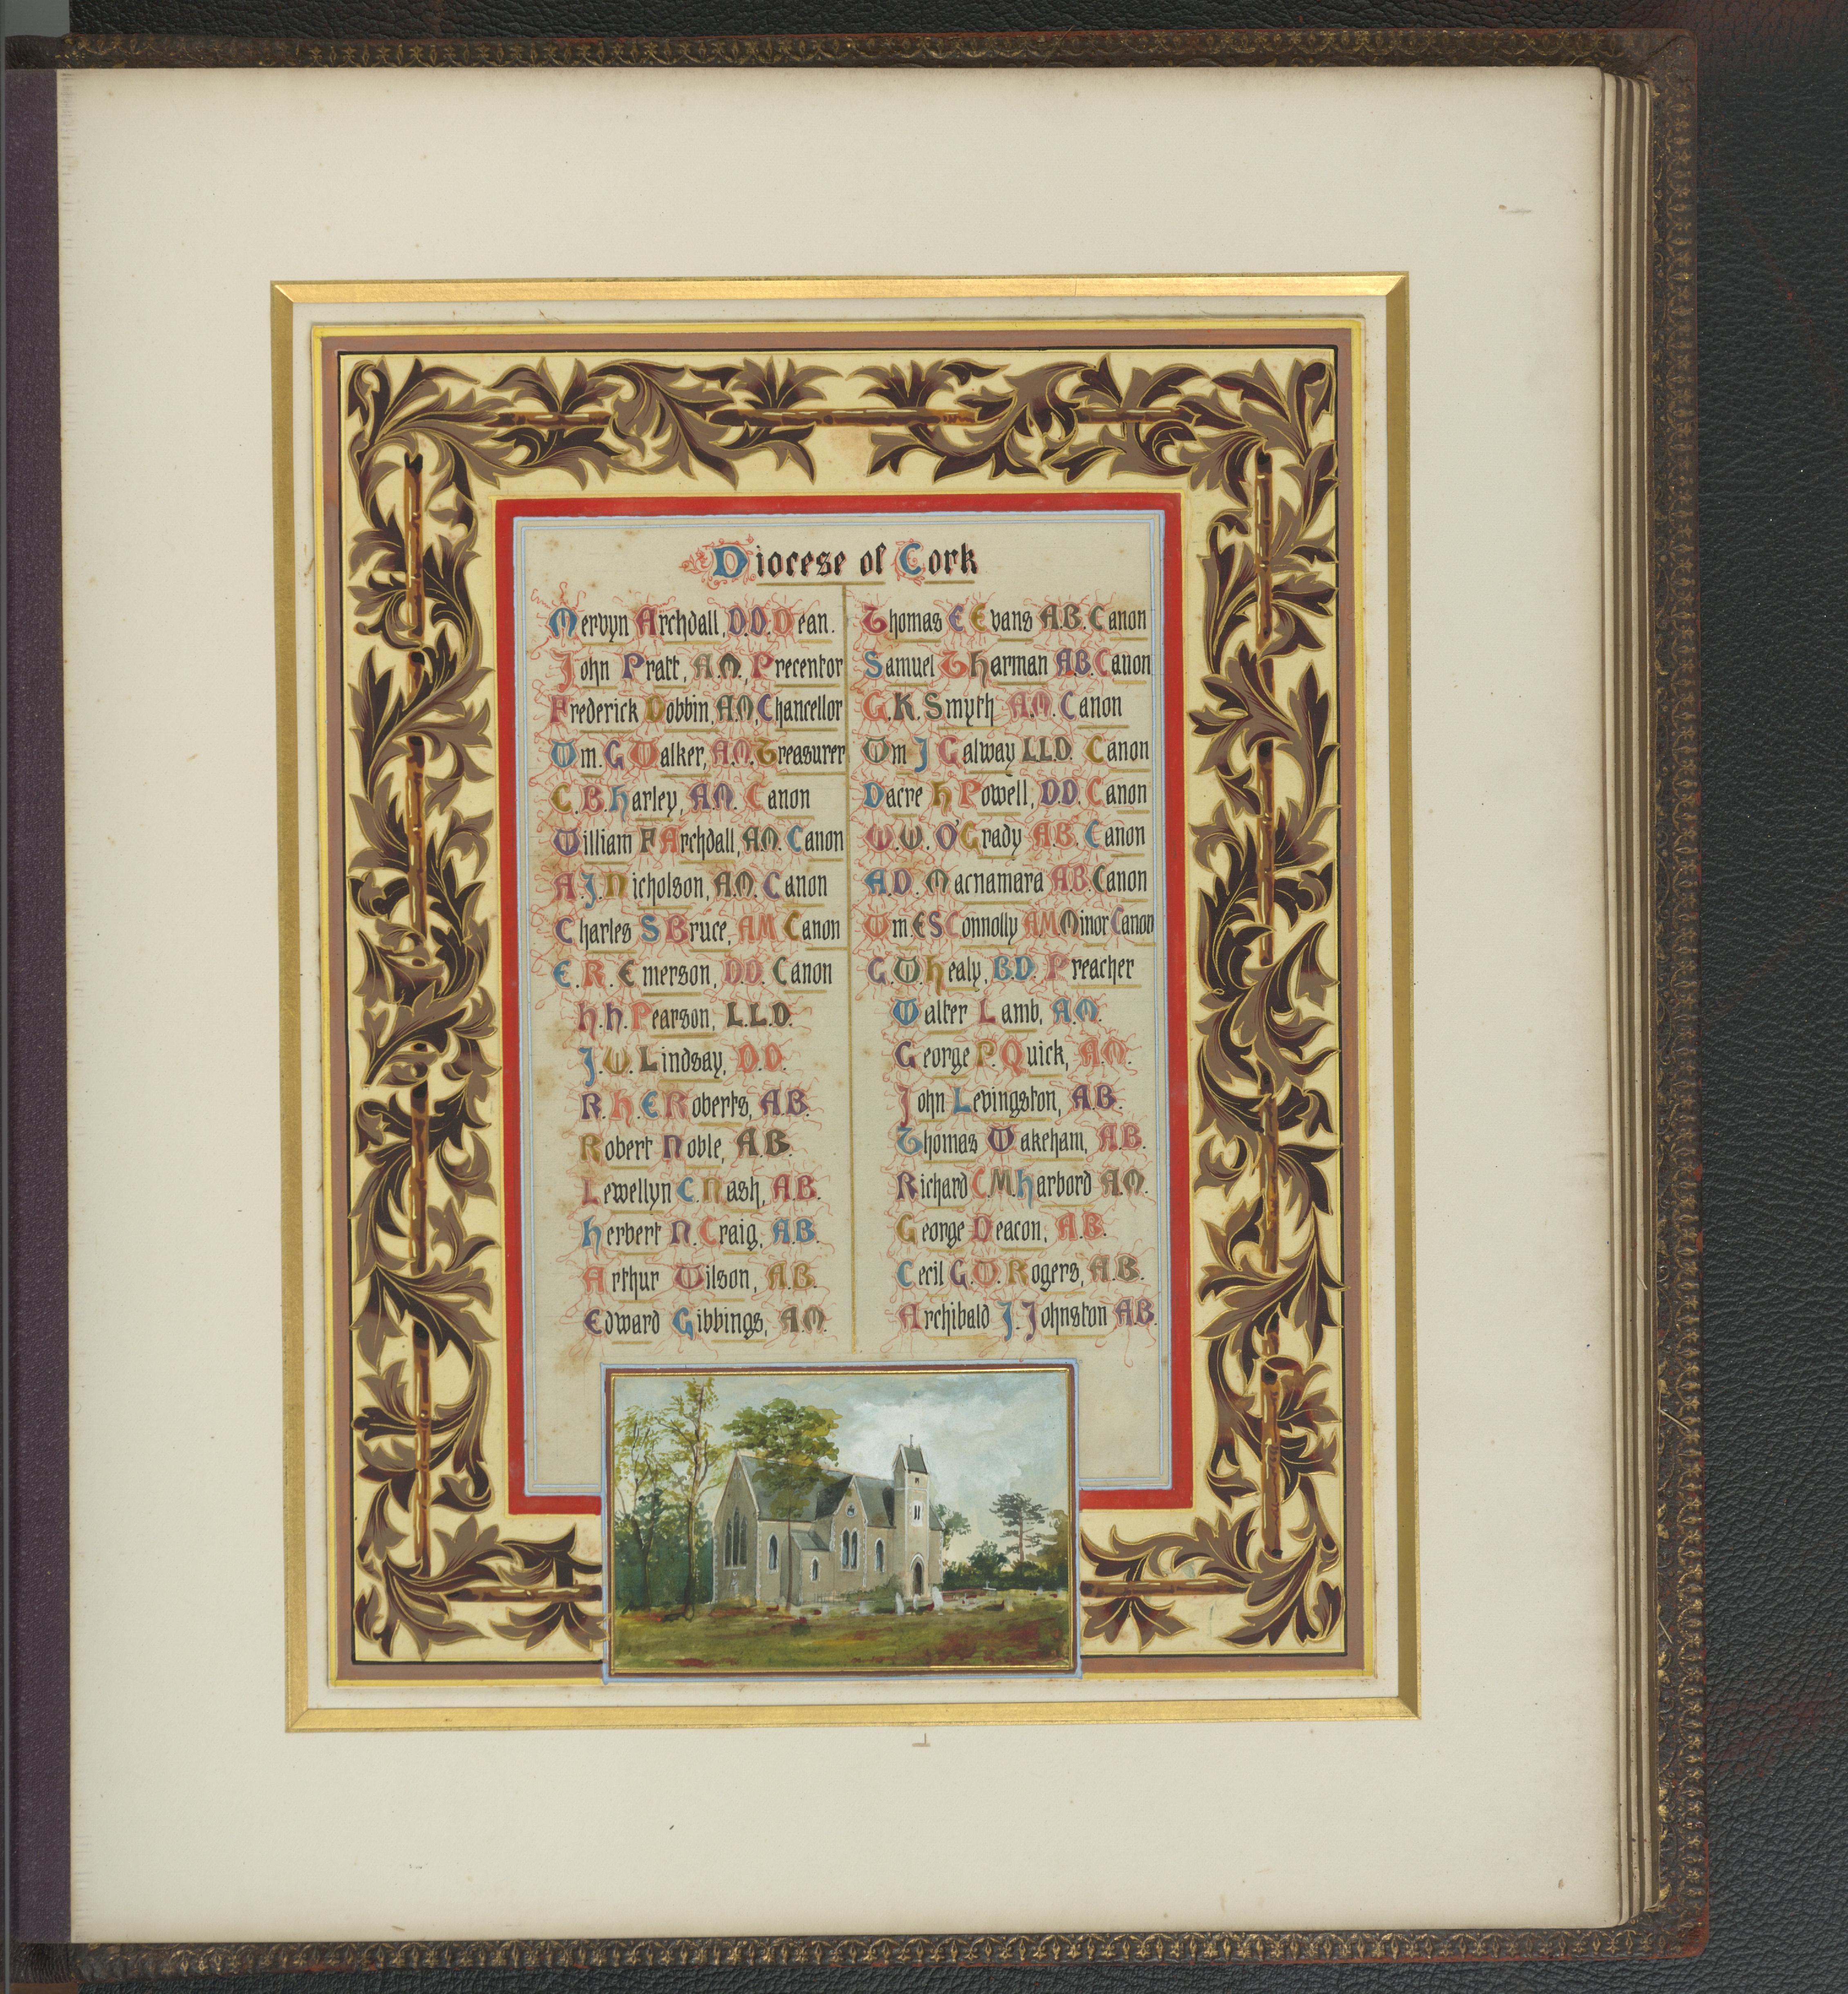 Diocese of Cork
Mervyn Archdall, D.D. Dean.
John Pratt, A.M., Precentor
Frederick Dobbin, A.M, Chancellor
Wm. G Walker, A.M. Treasurer
C.B. Harley, A.M. Canon
William F Archdall, A.M. Canon
A.J. Nicholson, A.M. Canon
Charles S Bruce, AM Canon
E. R. Emerson, D.D. Canon
H.H. Pearson, L.L.D.
J.W. Lindsay, D.D.
R. H. E Roberts, A.B.
Robert Noble, A.B.
Lewellyn C. Nash, A.B.
Herbert N. Craig, A.B.
Arthur Wilson, A.B.
Edward Gibbings, A.M.
Thomas E Evans A.B. Canon
Samuel T Harman A.B. Canon
G.K. Smyth A.M. Canon
Wm J Galway LL.D. Canon
Dacre H Powell, D.D. Canon
W.W. O'Grady A.B. Canon
A.D. Macnamara A.B. Canon
Wm E S Connolly AM Minor Canon
G.W Healy, B.D. Preacher
Walter Lamb, A.M.
George P. Quick, A.M.
John Levingston, A.B.
Thomas Wakeham, A.B.
Richard C.M. Harbord A.M.
George Deacon, A.B.
Cecil G.W. Rogers, A.B.
Archibald J. Johnston A.B.